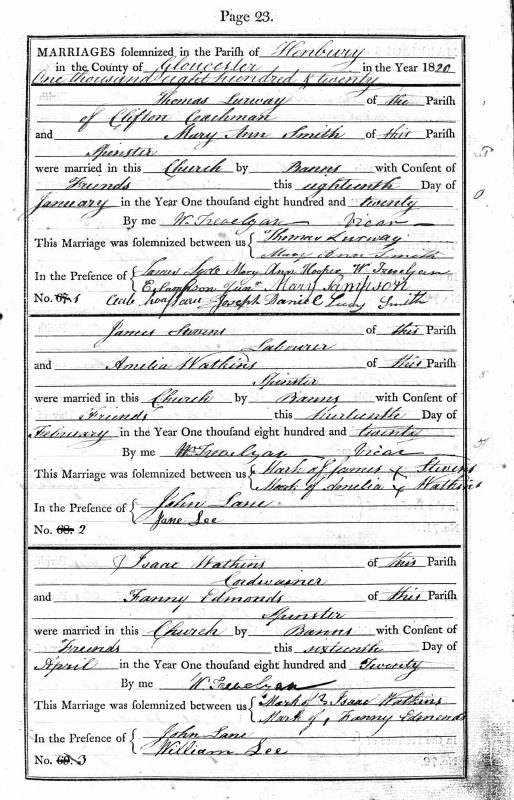 Page 23.
MARRIAGES solemnized in the Parish of Henbury
in the County of Gloucester in the Year 1820
One thousand eight hundred & twenty
Thomas Lurway of the Parish
of Clifton Coachman
and Mary Ann Smith of this Parish
Spinster
were married in this Church by Banns with Consent of
Friends this eighteenth Day of
January in the Year One thousand eight hundred and twenty
By me W. Trevelyan Vicar
This Marriage was solemnized between us { Thomas Lurway
Mary Ann Smith
In the Presence of { James Mary Ann Hooper W Trevelyan
Sampson Junr Mary Sampson
No. 67. 1 Joseph Daniel Lucy Smith
James Stevens of this Parish
Labourer
and Amelia Watkins of this Parish
Spinster
were married in this Church by Banns with Consent of
Friends this thirteenth Day of
February in the Year One thousand eight hundred and twenty
By me W Trevelyan Vicar
This Marriage was solemnized between us { Mark of James x Stevens
Mark of Amelia x Watkins
In the Presence of { John Lane
Jane Lee
No. 68. 2
Isaac Watkins of this Parish
Cordwainer
and Fanny Edmonds of this Parish
Spinster
were married in this Church by Banns with Consent of
Friends this sixteenth Day of
April in the Year One thousand eight hundred and Twenty
By me W Trevelyan
This Marriage was solemnized between us { Mark of Isaac Watkins
Mark of Fanny Edmonds
In the Presence of { John Lane
William Lee
No. 69. 3